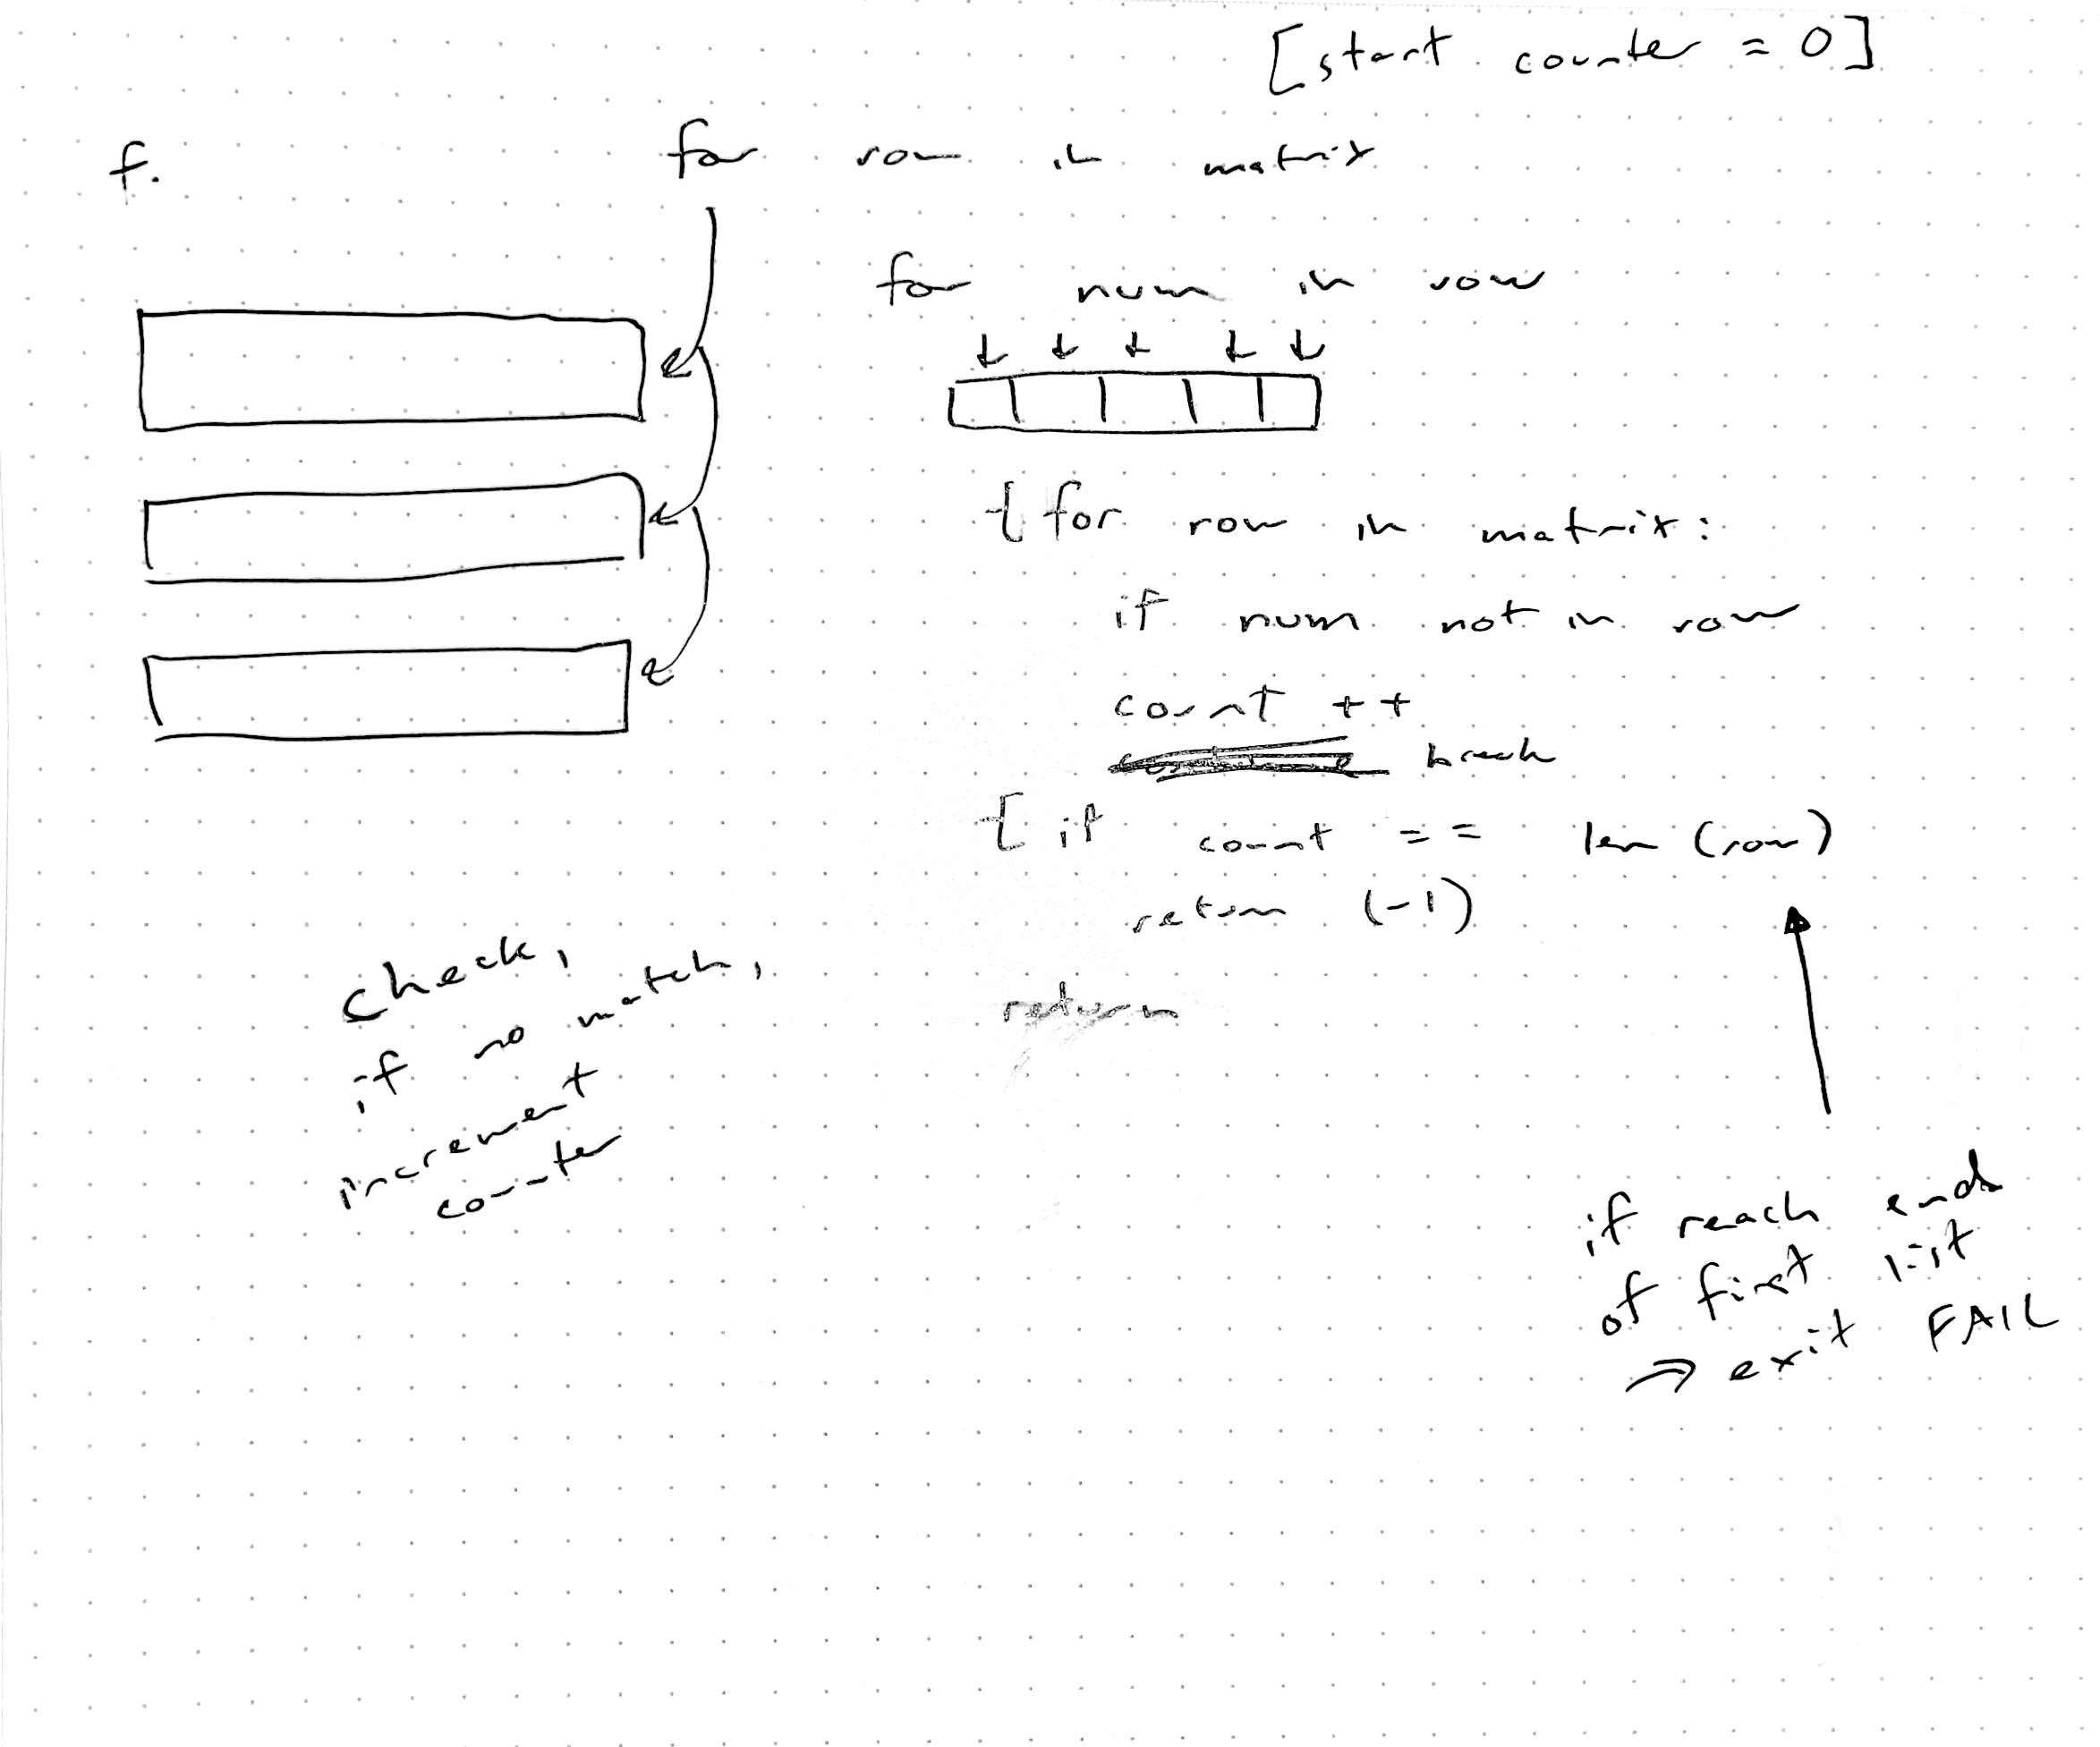 [start counter = 0]
f.
for row in matrix
for num in row
{ for row in matrix:
if num not in row
count ++
break
{ if count == len (row)
return (-1)
return
check,
if no match,
increment
counter
if reach end
of first list
→ exit FAIL